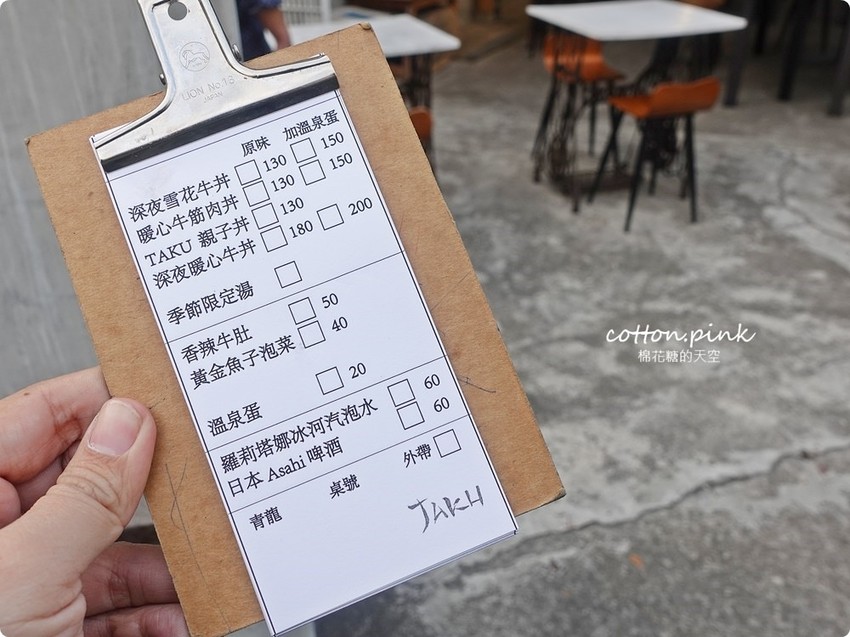 LION No.18
JAPAN
原味 加溫泉蛋
深夜雪花牛丼 130 150
暖心牛筋肉丼 130 150
TAKU 親子丼 130
深夜暖心牛丼 180 200
季節限定湯
香辣牛肚 50
黃金魚子泡菜 40
溫泉蛋 20
羅莉塔娜冰河汽泡水 60
日本 Asahi 啤酒 60
青龍 桌號 外帶
TAKU
cotton.pink
棉花糖的天空